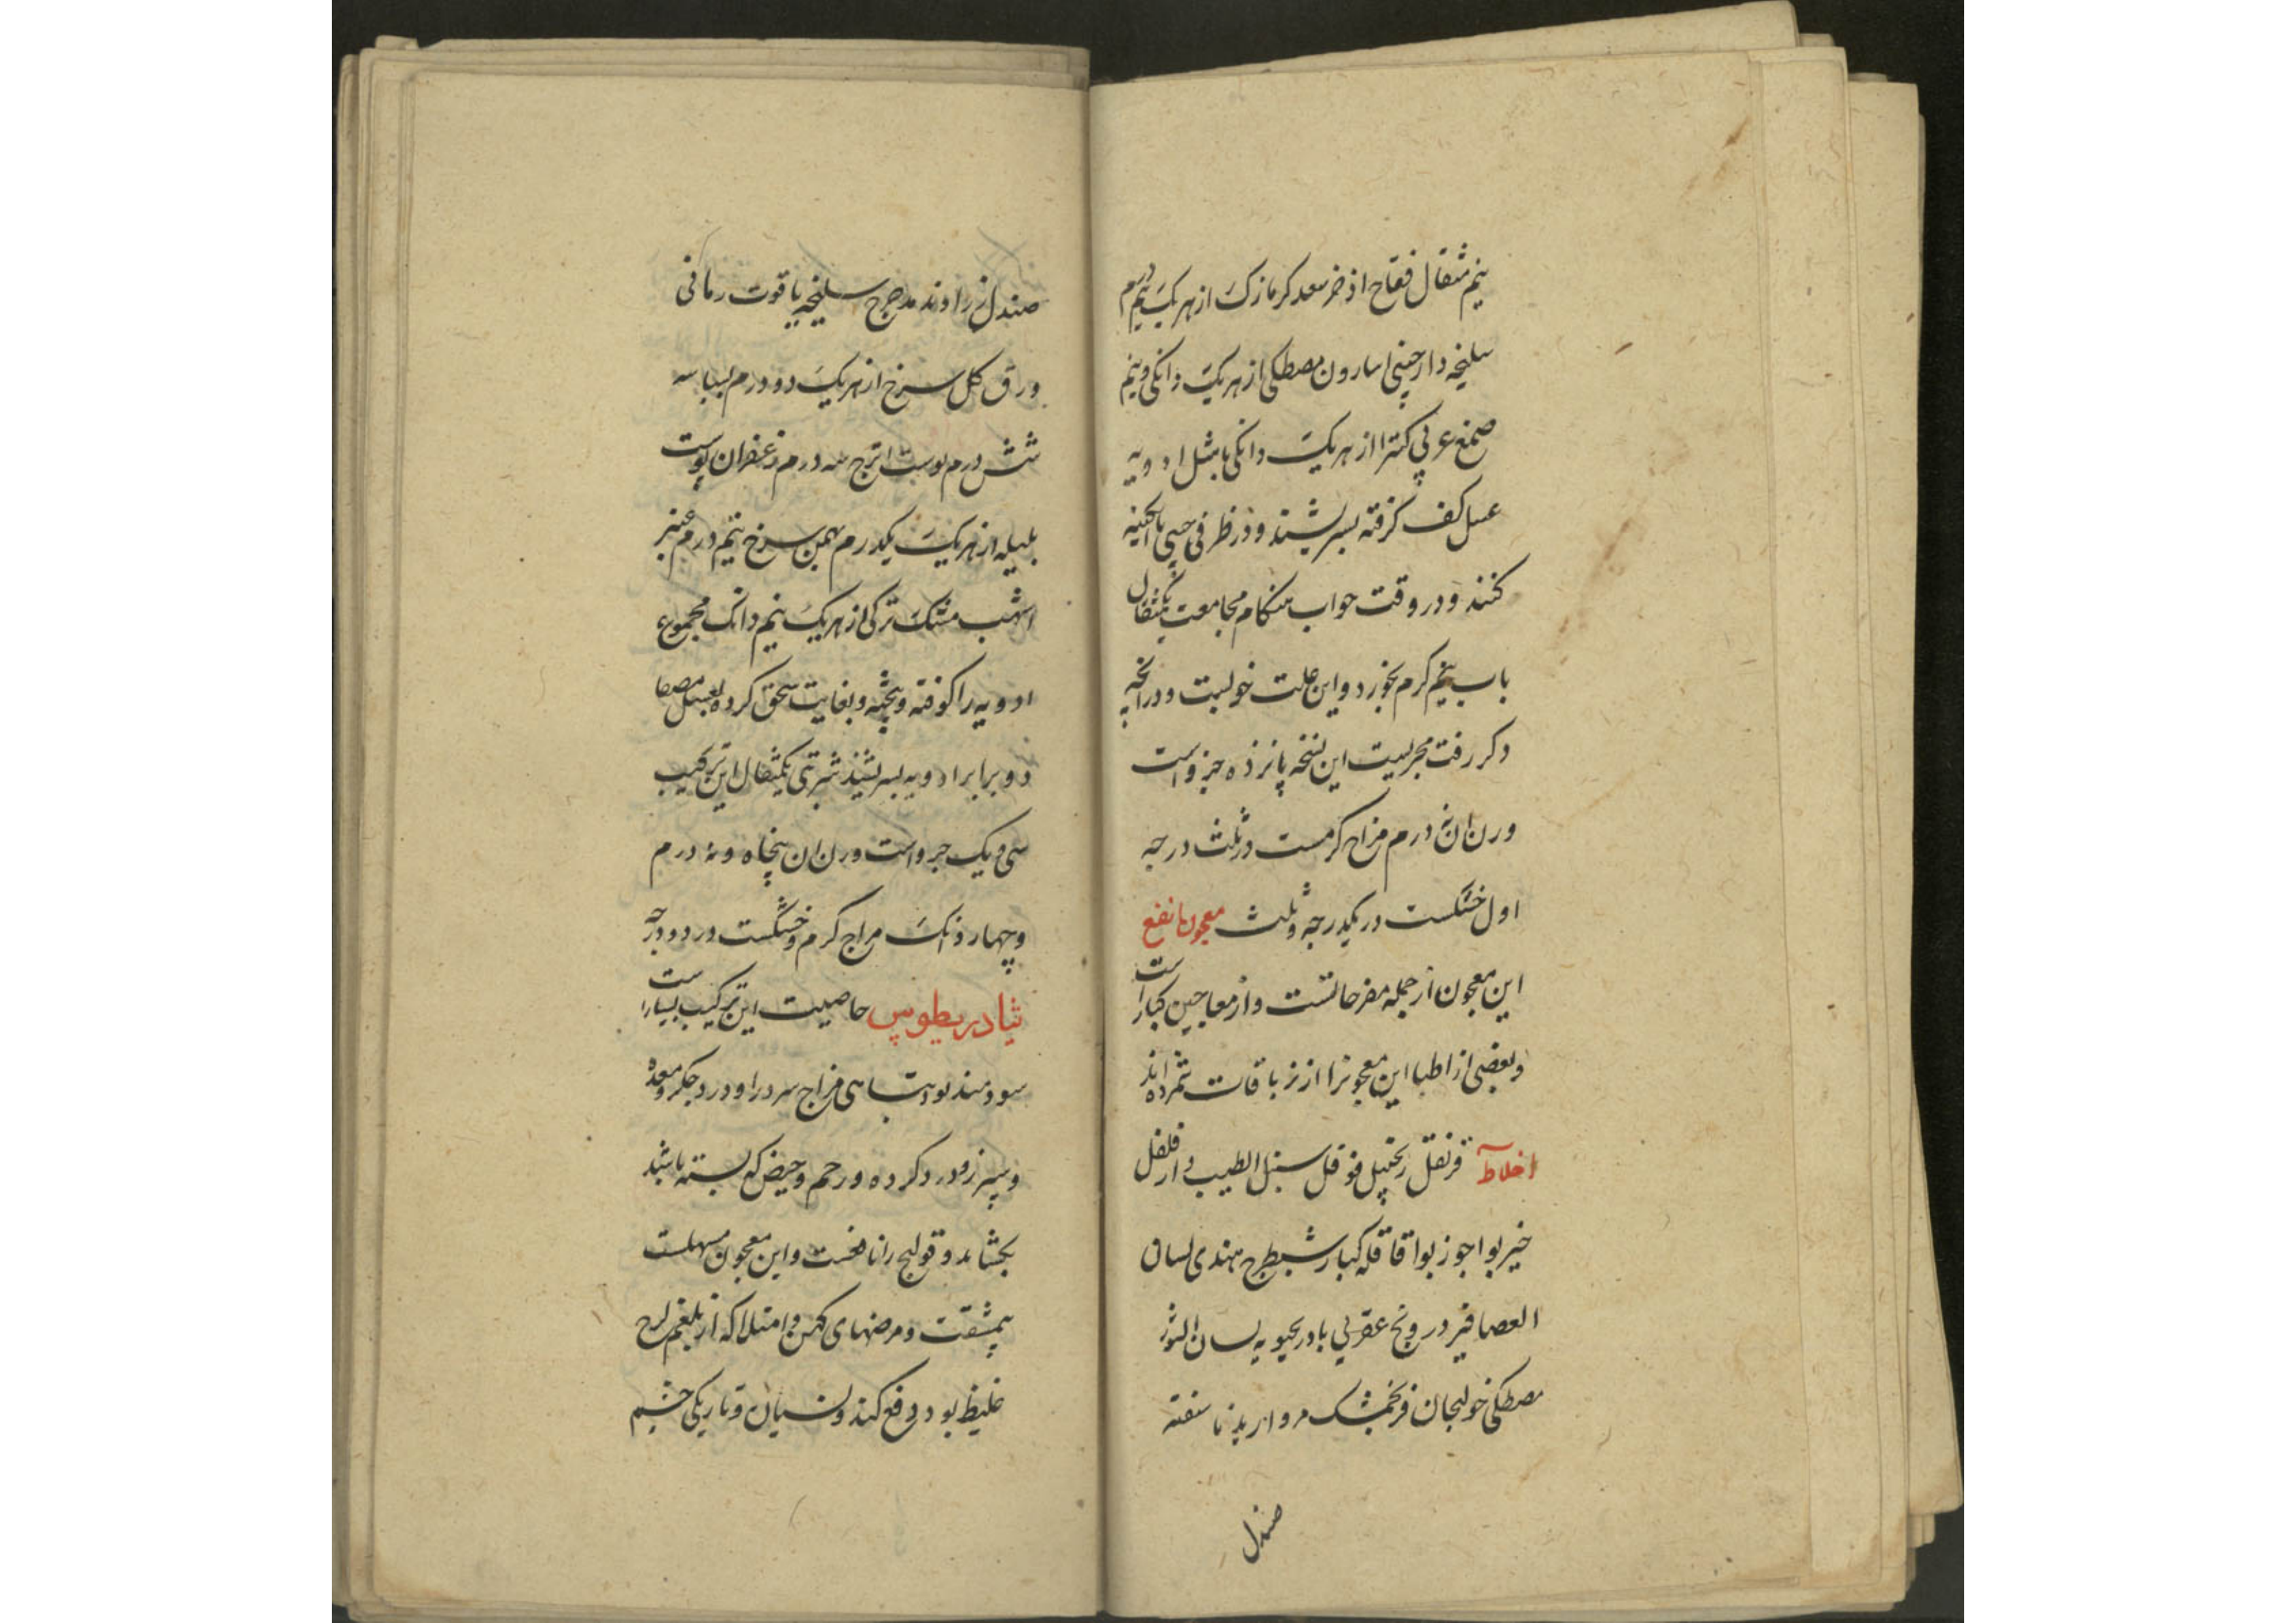 نیم مثقال فقاح اذخر سعد کزمازک از هریک نیم درم
سلیخه دارچینی اسارون مصطکی از هریک دانکی و نیم
صمغ عربی کتیرا از هریک دانکی با مثل ادویه
عسل کف کرفته بسریشند و در ظرفی چینی یا ابکینه
کنند و در وقت خواب هنکام مجامعت یکمثقال
باب نیم کرم بخورد و این علت خولیت و درانچه
ذکر رفت مجربیت این نسخه پانزده جزواست
وزن ان نه درم مزاج کرمست در ثلث درجه
اول خشکست در یکدرجه و ثلث معجون نافع
این معجون از جمله مفرحاتست و از معاجین کبار است
و بعضی از اطبا این معجونرا از تریاقات شمرده اند
اخلاط قرنفل زنجبیل فوفل سنبل الطیب دارفلفل
خیربوا جوزبوا قاقله کبار شیطرج هندی لسان
العصافیر درونج عقربی بادرنجبویه لسان الثور
مصطکی خولنجان فرنجمشک مروارید ناسفته
صندل
صندل زراوند مدحرج سلیخه یاقوت رمانی
ورق کل سرخ از هریک دو درم بسباسه
شش درم پوست اترج سه درم زعفران پوست
بلیله از هریک یکدرم بهمن سرخ نیم درم عنبر
اشهب مشک ترکی از هریک نیم دانک مجموع
ادویه را کوفته و بیخته و بغایت سحق کرده بعسل مصفا
دو برابر ادویه بسریشند شربتی یکمثقال این ترکیب
سی و یک جزواست وزن ان پنجاه و نه درم
و چهار دانک مزاج کرم و خشکست در دو درجه
ثیادریطوس خاصیت این ترکیب بسیار است
سودمند بود تباهی مزاج سرد را و درد جکر و معده
و سپرز و درد کرده و رحم و حیض که بسته باشد
بکشاید و قولنج را نافعست و این معجون مسهلست
بیمشقت و مرضهای کهن و امتلا که از بلغم لزج
غلیظ بود دفع کند و نسیان و تاریکی چشم